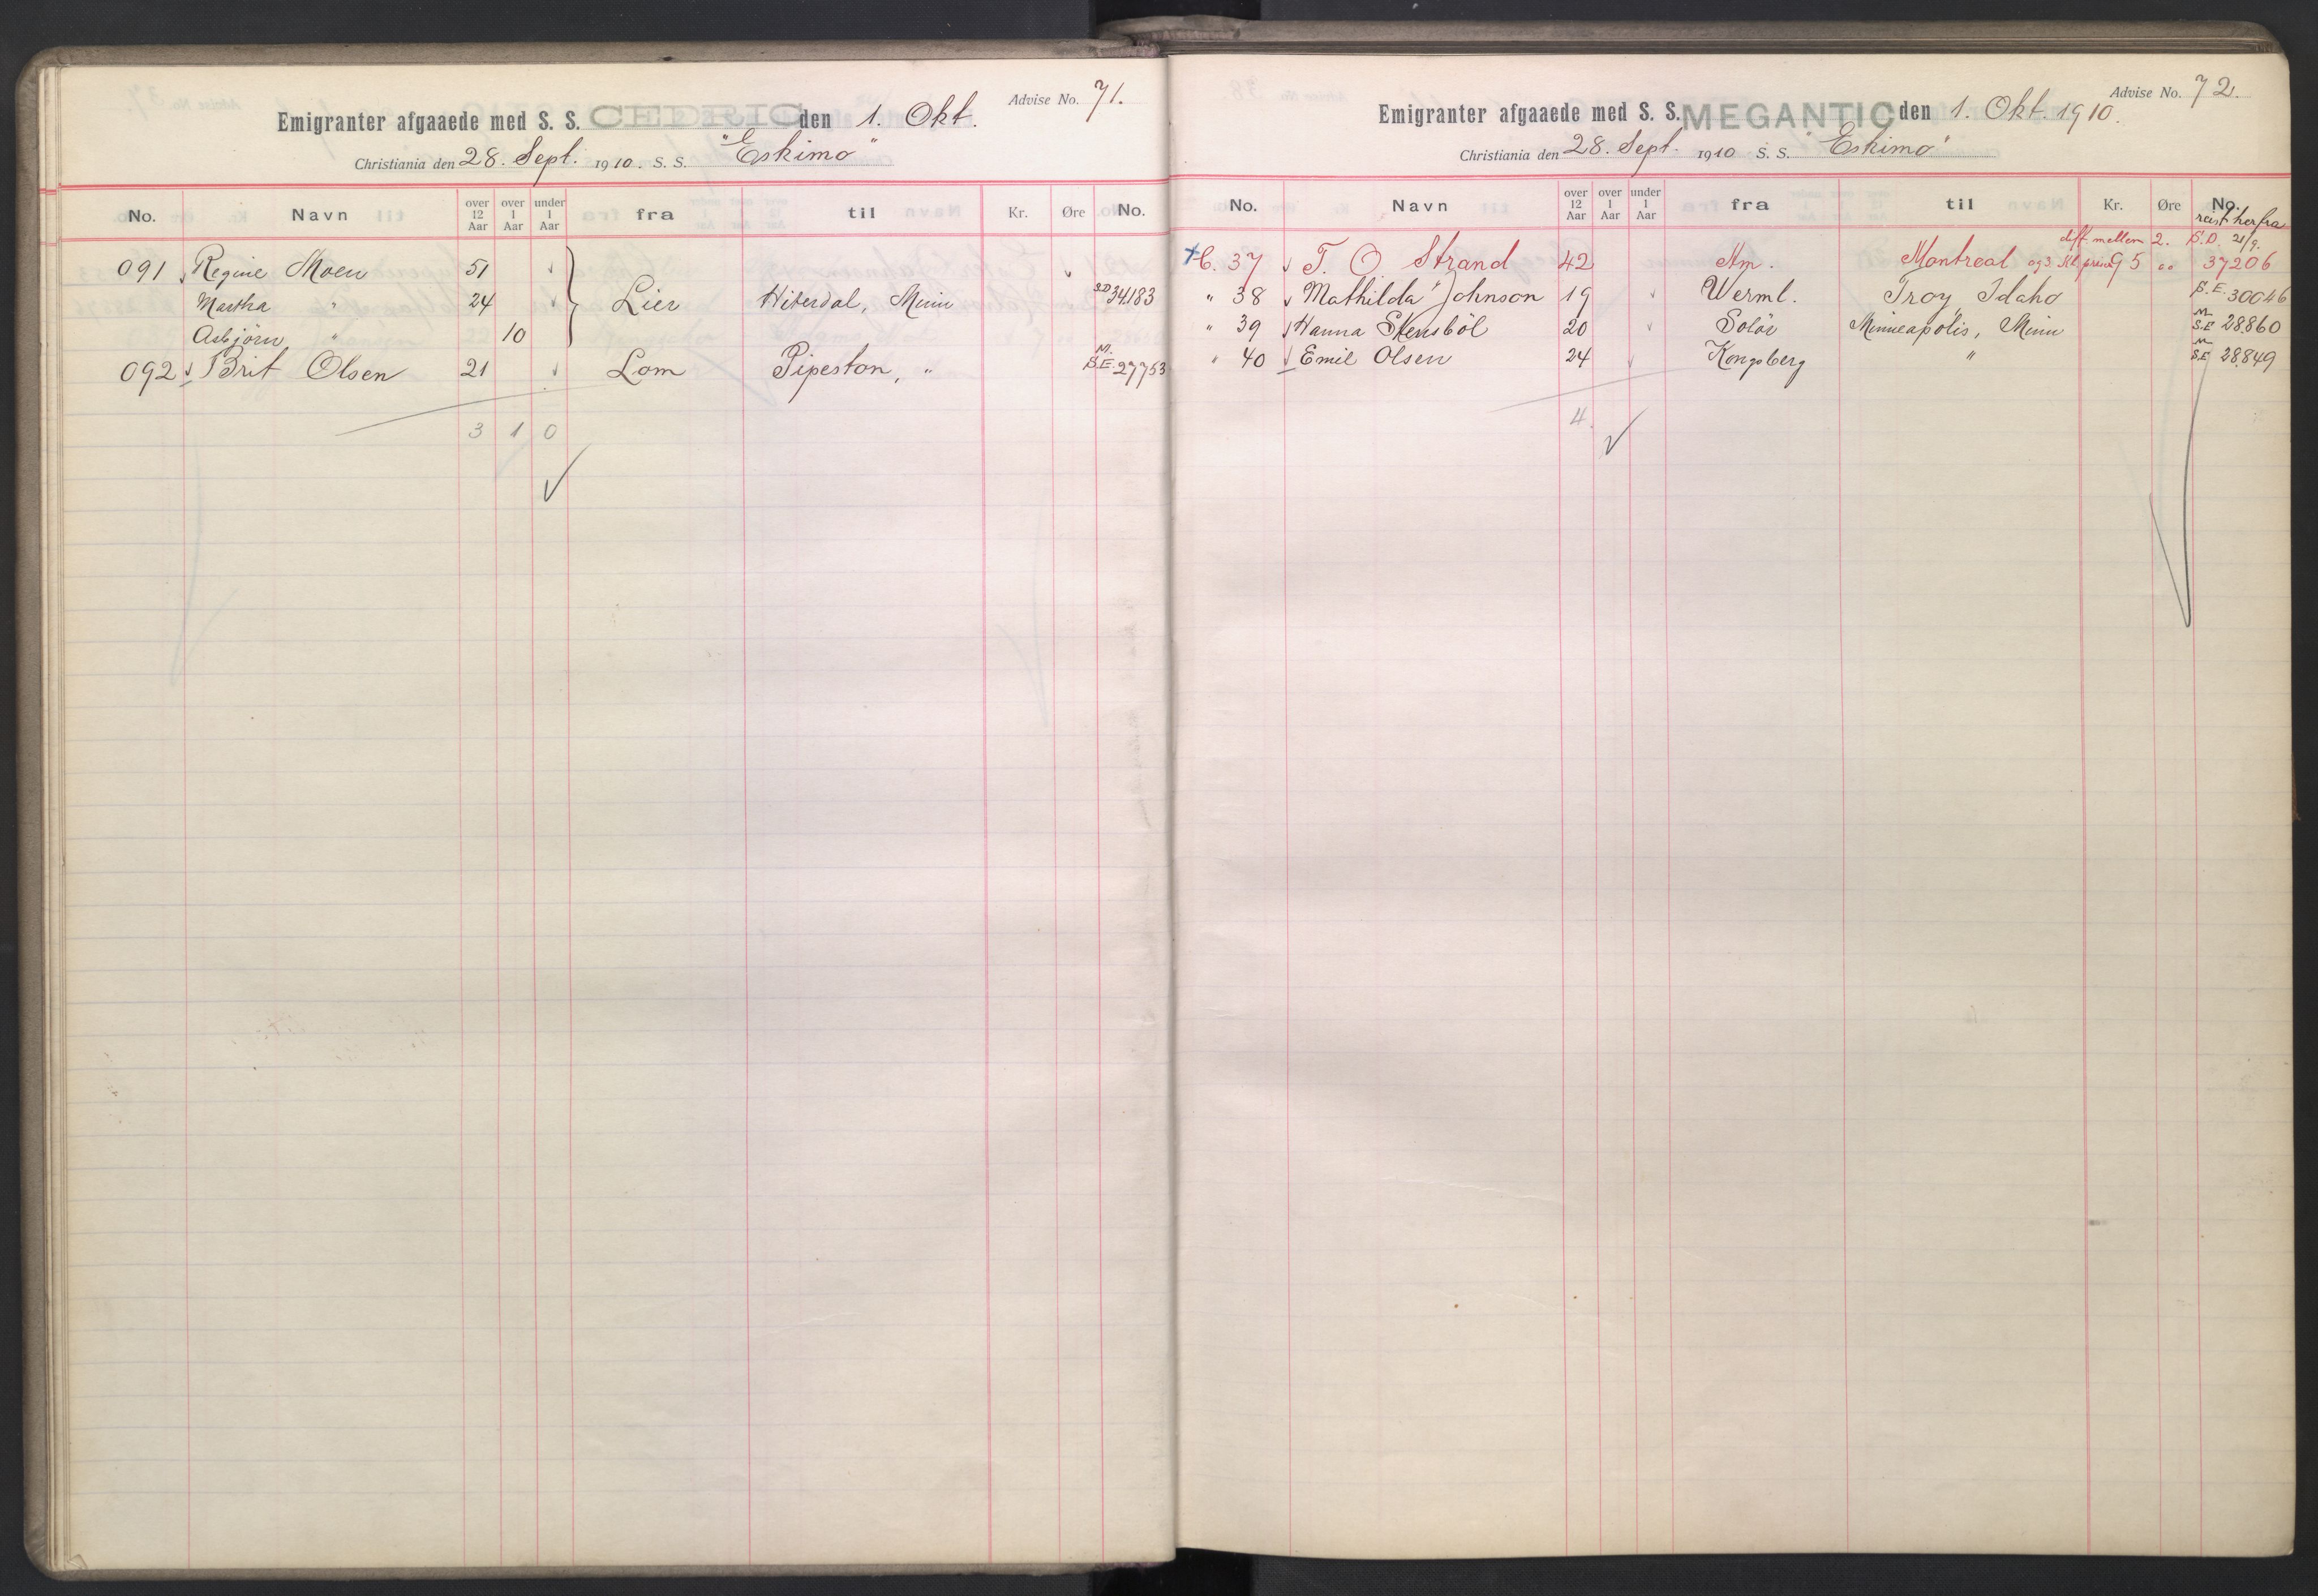 Advise No. 71.
Emigranter afgaaede med S. S. CEDRIC den 1. Okt.
Christiania den 28. Sept. 1910. S. S. "Eskimo"
No. Navn over 12 Aar over 1 Aar under 1 Aar fra til Kr. Øre No.
091 Regine Moen 51 Lier Hiterdal, Minn S.D 34183
Martha " 24
Asbjörn " 10
092 Brit Olsen 21 Lom Pipeston, " M. S.E. 27753
3 1 0
Advise No. 72.
Emigranter afgaaede med S. S. MEGANTIC den 1. Okt. 1910.
Christiania den 28. Sept. 1910 S. S. "Eskimo"
No. Navn over 12 Aar over 1 Aar under 1 Aar fra til Kr. Øre No.
reist herfra
diff. mellem 2. S.D. 21/9.
C. 37 T. O Strand 42 Am. Montreal og 3. Kl. 95 00 37206
" 38 Mathilda Johnson 19 Werml. Troy, Idaho S.E. 30046
" 39 Hanna Stensböl 20 Solör Minneapolis, Minn M S.E 28860
" 40 Emil Olsen 24 Kongsberg " M S.E 28849
4